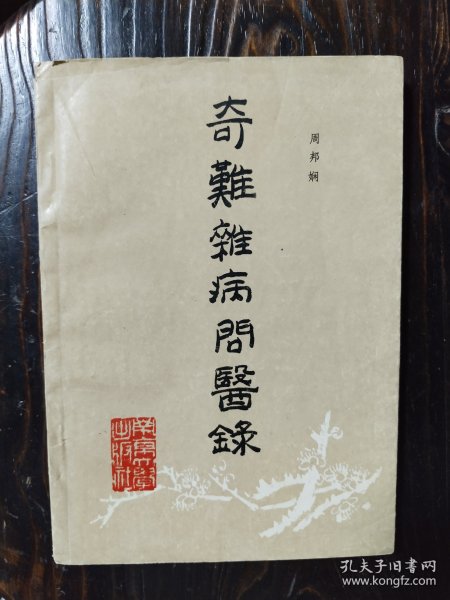 奇難雜病問醫錄
周邦炯
南京大學
出版社
孔夫子旧书网
www.kongfz.com